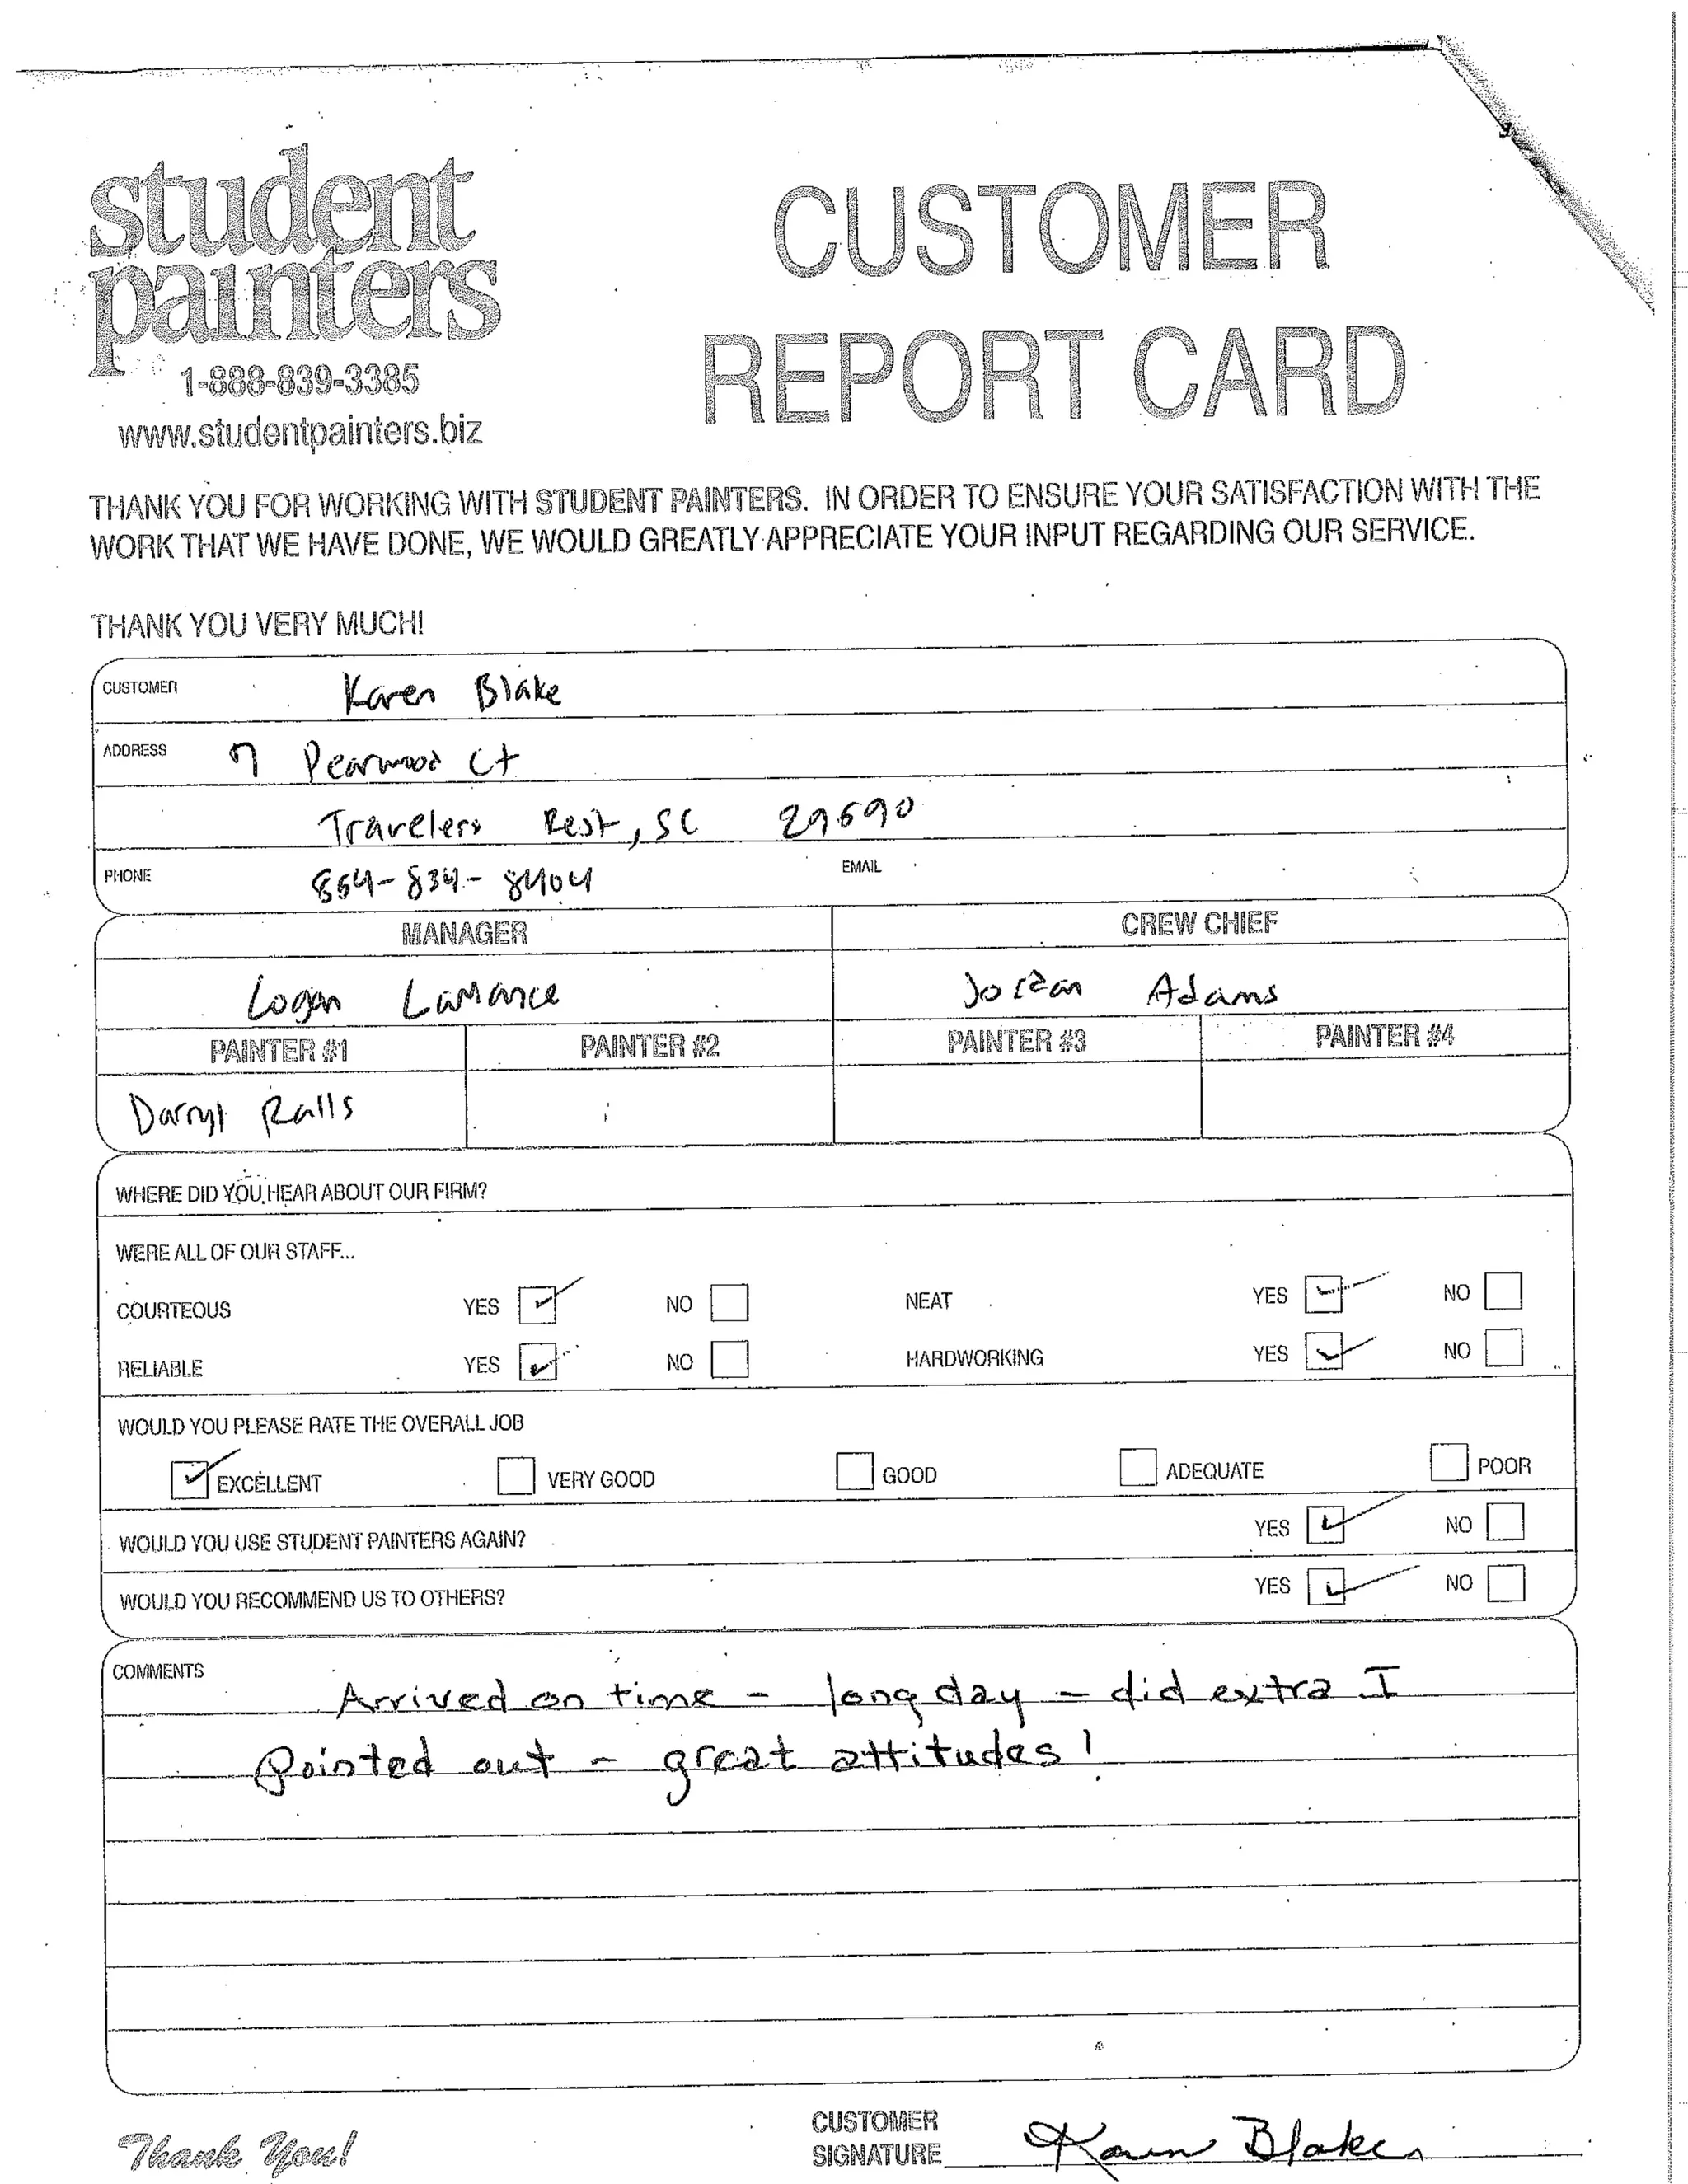 student
painters
1-888-839-3385
www.studentpainters.biz
CUSTOMER
REPORT CARD
THANK YOU FOR WORKING WITH STUDENT PAINTERS. IN ORDER TO ENSURE YOUR SATISFACTION WITH THE
WORK THAT WE HAVE DONE, WE WOULD GREATLY APPRECIATE YOUR INPUT REGARDING OUR SERVICE.
THANK YOU VERY MUCH!
CUSTOMER Karen Blake
ADDRESS 7 Pearwood Ct
Travelers Rest, SC 29690
PHONE 864-834-8404 EMAIL
MANAGER CREW CHIEF
Logan LaMance Jordan Adams
PAINTER #1 PAINTER #2 PAINTER #3 PAINTER #4
Darryl Ralls
WHERE DID YOU HEAR ABOUT OUR FIRM?
WERE ALL OF OUR STAFF...
COURTEOUS YES NO NEAT YES NO
RELIABLE YES NO HARDWORKING YES NO
WOULD YOU PLEASE RATE THE OVERALL JOB
EXCELLENT VERY GOOD GOOD ADEQUATE POOR
WOULD YOU USE STUDENT PAINTERS AGAIN? YES NO
WOULD YOU RECOMMEND US TO OTHERS? YES NO
COMMENTS Arrived on time - long day - did extra I
pointed out - great attitudes!
Thank You!
CUSTOMER
SIGNATURE Karen Blake